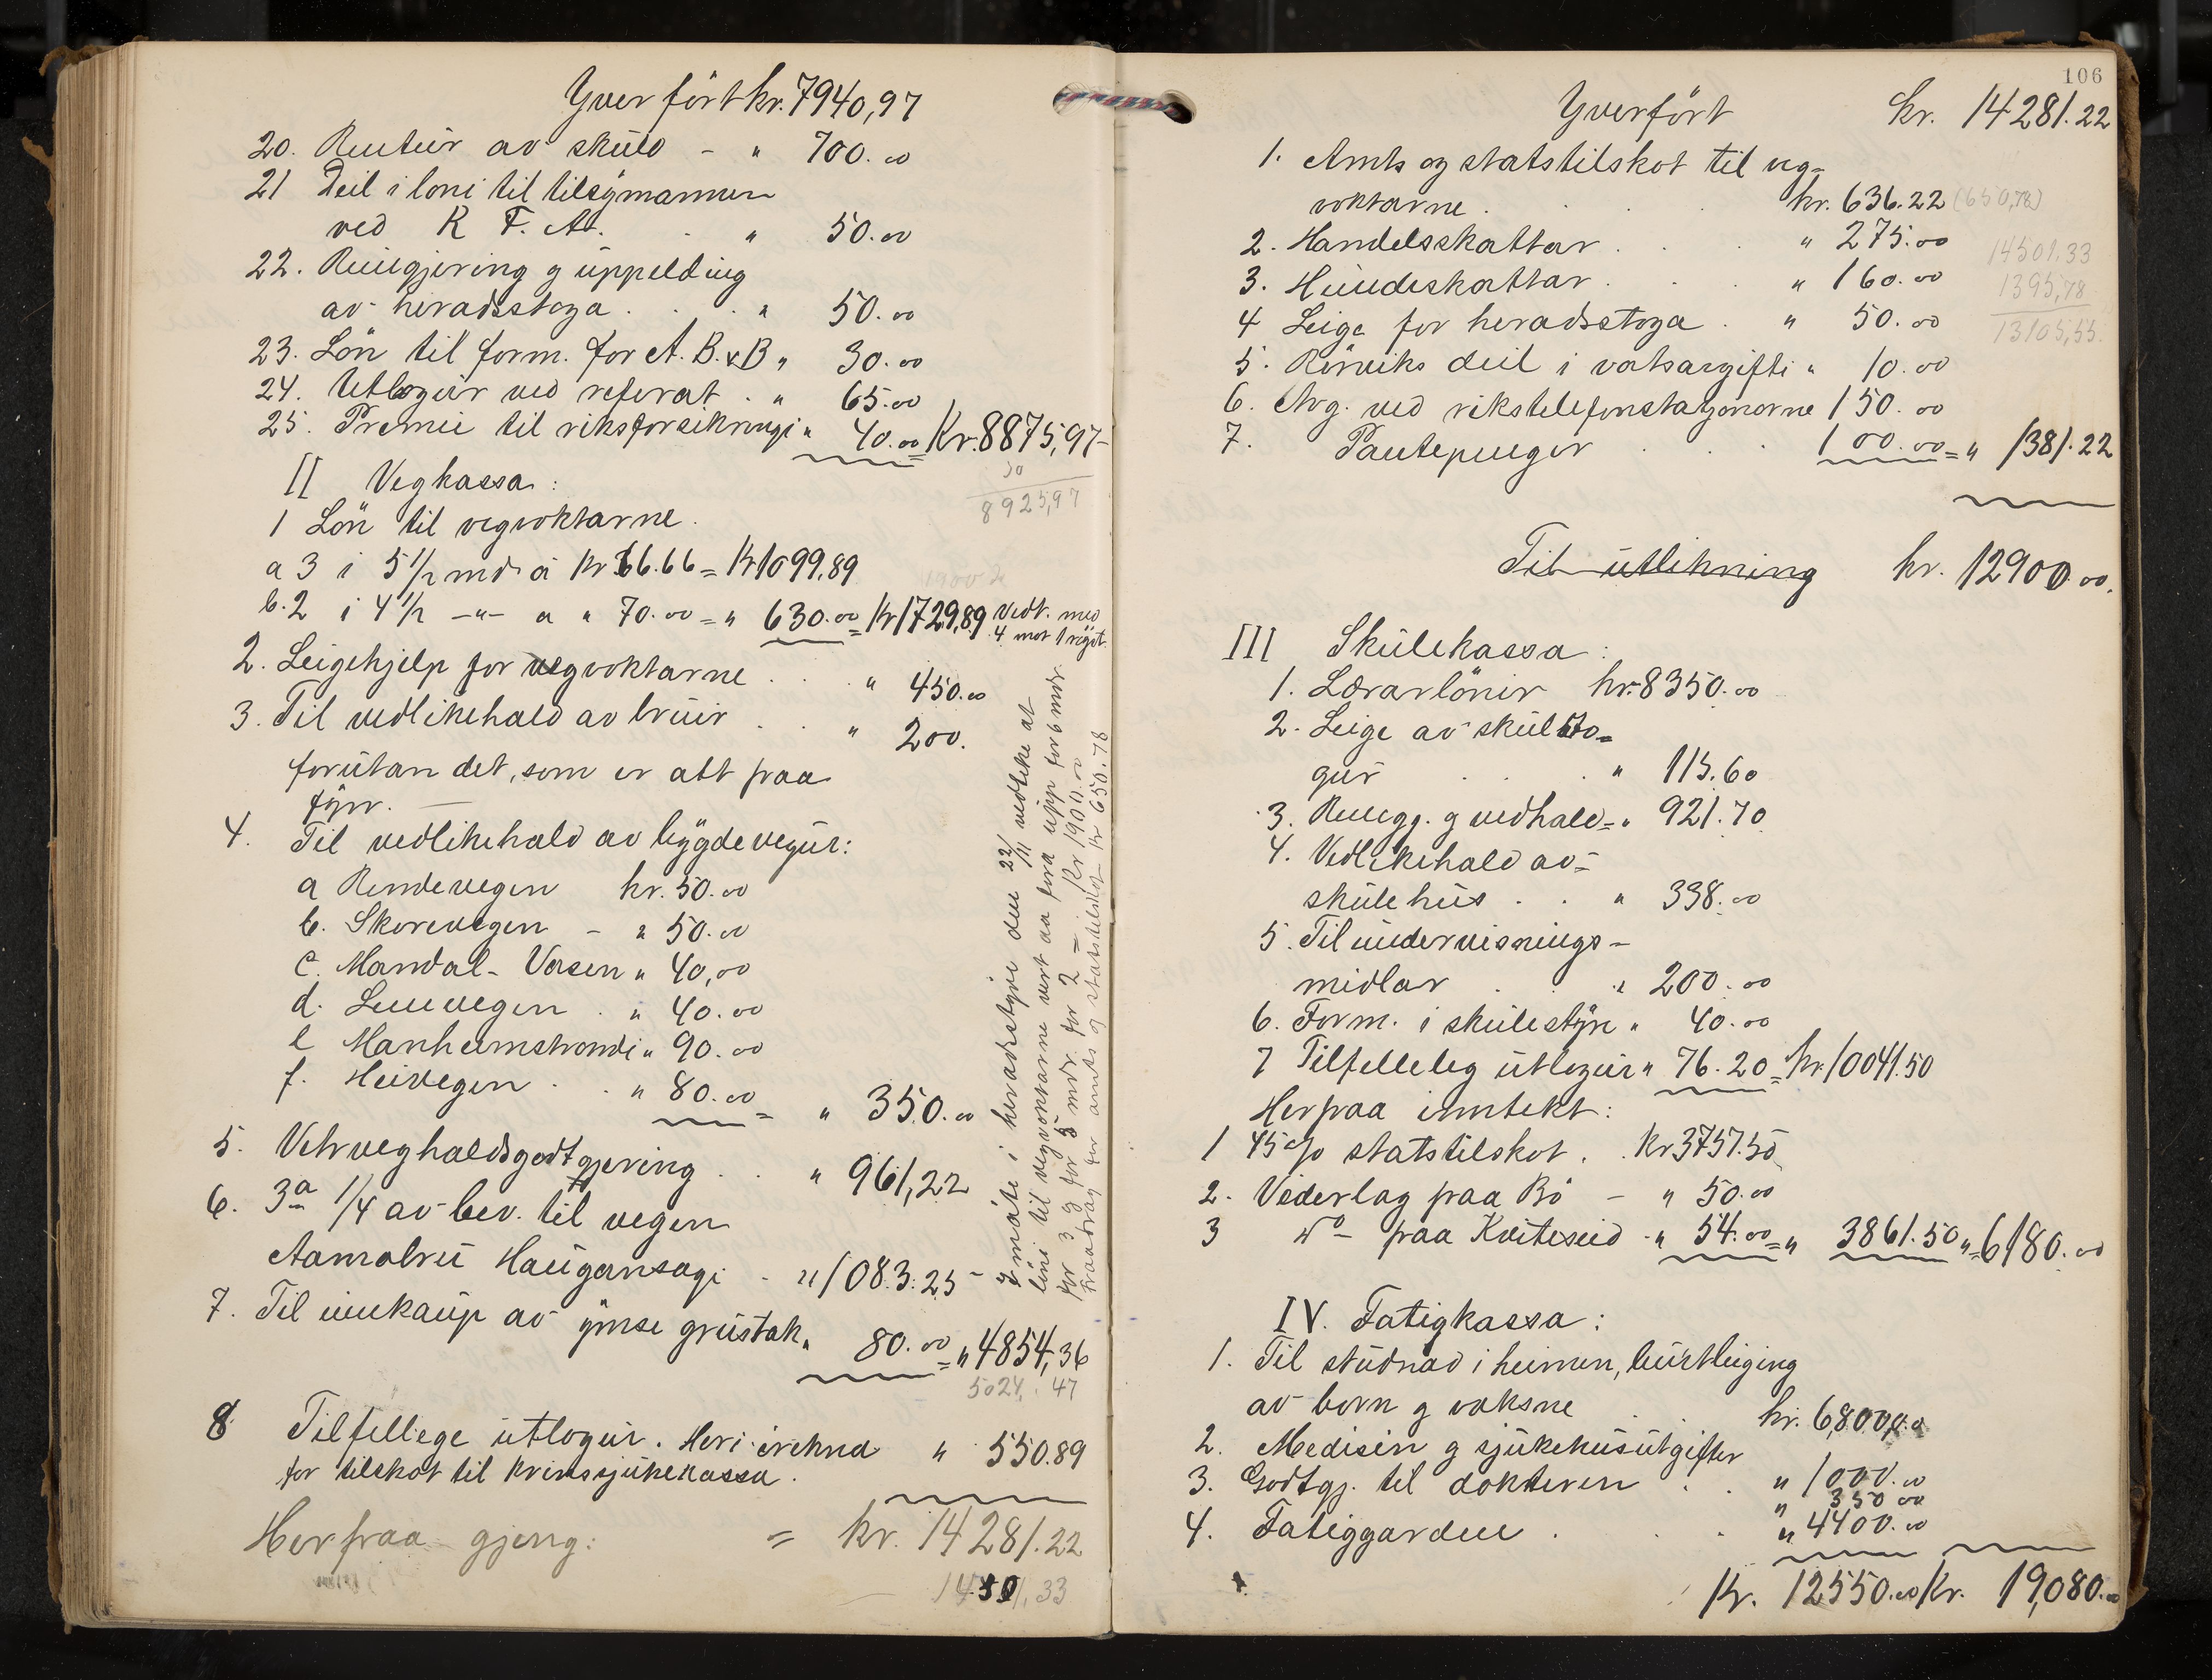 Yverfört kr. 7940,97
20. Rentur av skuld - " 700.00
21 Deil i löni til tilsynsmannen
ved K. F. At. " 50.00
22. Reingjering g uppelding
av heradsstoga . . . " 50.00
23. Lön til form. for A. B. & B " 30.00
24. Utlogur ved referat . " 65.00
25. Premie til riksforsikringi " 40.00 = Kr. 8875,97
50
8925,97
II Vegkassa:
1 Lön til vegvoktarne.
a 3 i 5 1/2 md à Kr 66.66 = Kr 1099,89
1900
b. 2 i 4 1/2 -"- a " 70.00 = " 630.00 = Kr 1729,89 Vedt. med
4 mot 1 røyst.
2. Leigehjelp for vegvoktarne . . . " 450.00
3. Til vedlikehald av bruir . . " 200.
forutan det, som er att paa
fyrr.
4. Til vedlikehald av bygdevegur:
a Rendevegen kr. 50.00
b. Skorevegen - " 50.00
c. Mandal-Vasen " 40,00
d. Leinvegen . " 40.00
e Manheimstrondi " 90.00
f. Heivegen . . " 80.00 = " 350.00
5. Vetrveghaldsgodtgjering . . " 961,22
6. 3a 1/4 av bev. til vegen
Aamotbru Haugansagi - " 1083.25
7. Til innkaup av ymse grustak " 80.00 = " 4854,36
5024.47
8 Tilfellege utlogur. Heri irekna " 550.89
for tilskot til krinssjukekassa.
Herpaa gjeng: = kr. 14281.22
14501,33
I möte i heradstyre den 22/11 vedtike at
löni til vegvoktarne vert aa föra upp for 6 mdr.
for 3 g for 5 mdr. for 2 = Kr 1900.00
Fraadrag for amts og statstilskot Kr 650.78
106
Yverfört kr. 14281.22
1. Amts og statstilskot til veg-
voktarne . . . kr. 636.22 (650,78)
2. Handelsskattar . . " 275.00
14501,33
3. Hundeskattar . . " 160.00
1395,78
4 Leige for heradsstoga . " 50.00
13105,55
5. Rörviks deil i vatsavgifti " 10.00
6. Avg. ved rikstelefonstatjonarne 150.00
7. Pantepengar . . 100.00 = " 1381.22
Til utlikning kr. 12900.00.
III Skulekassa:
1. Lærarlönir kr. 8350.00
2. Leige av skulsto-
gur . . " 115.60
3. Reingj. g vedhald - " 921.70
4. Vedlikehald av
skulehus . . " 338.00
5. Til undervisnings-
midlar . . " 200.00
6. Form. i skulestyre " 40.00
7 Tilfelleleg utlogur " 76.20 = kr. 10041.50
Herpaa inntekt:
1 45 % statstilskot . Kr 3757.50
2. Vederlag paa Bö - " 50.00
3 do - paa Kviteseid - " 54.00 = " 3861.50 " = 6180.00
IV. Fatigkassa:
1. Til studnad i heimen, burtleiging
av born g vaksne . . kr. 6,800,00
2. Medisin g sjukehusutgifter
" 1000.00
3. Godtgj. til dokteren . . " 350 00
4. Fatiggarden . . . " 4400.00
Kr. 12550.00 Kr. 19,080.00